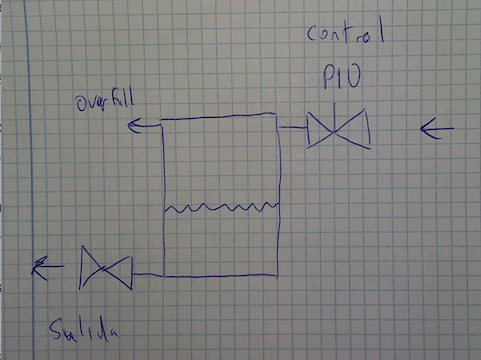 control
PID
overfill
Salida